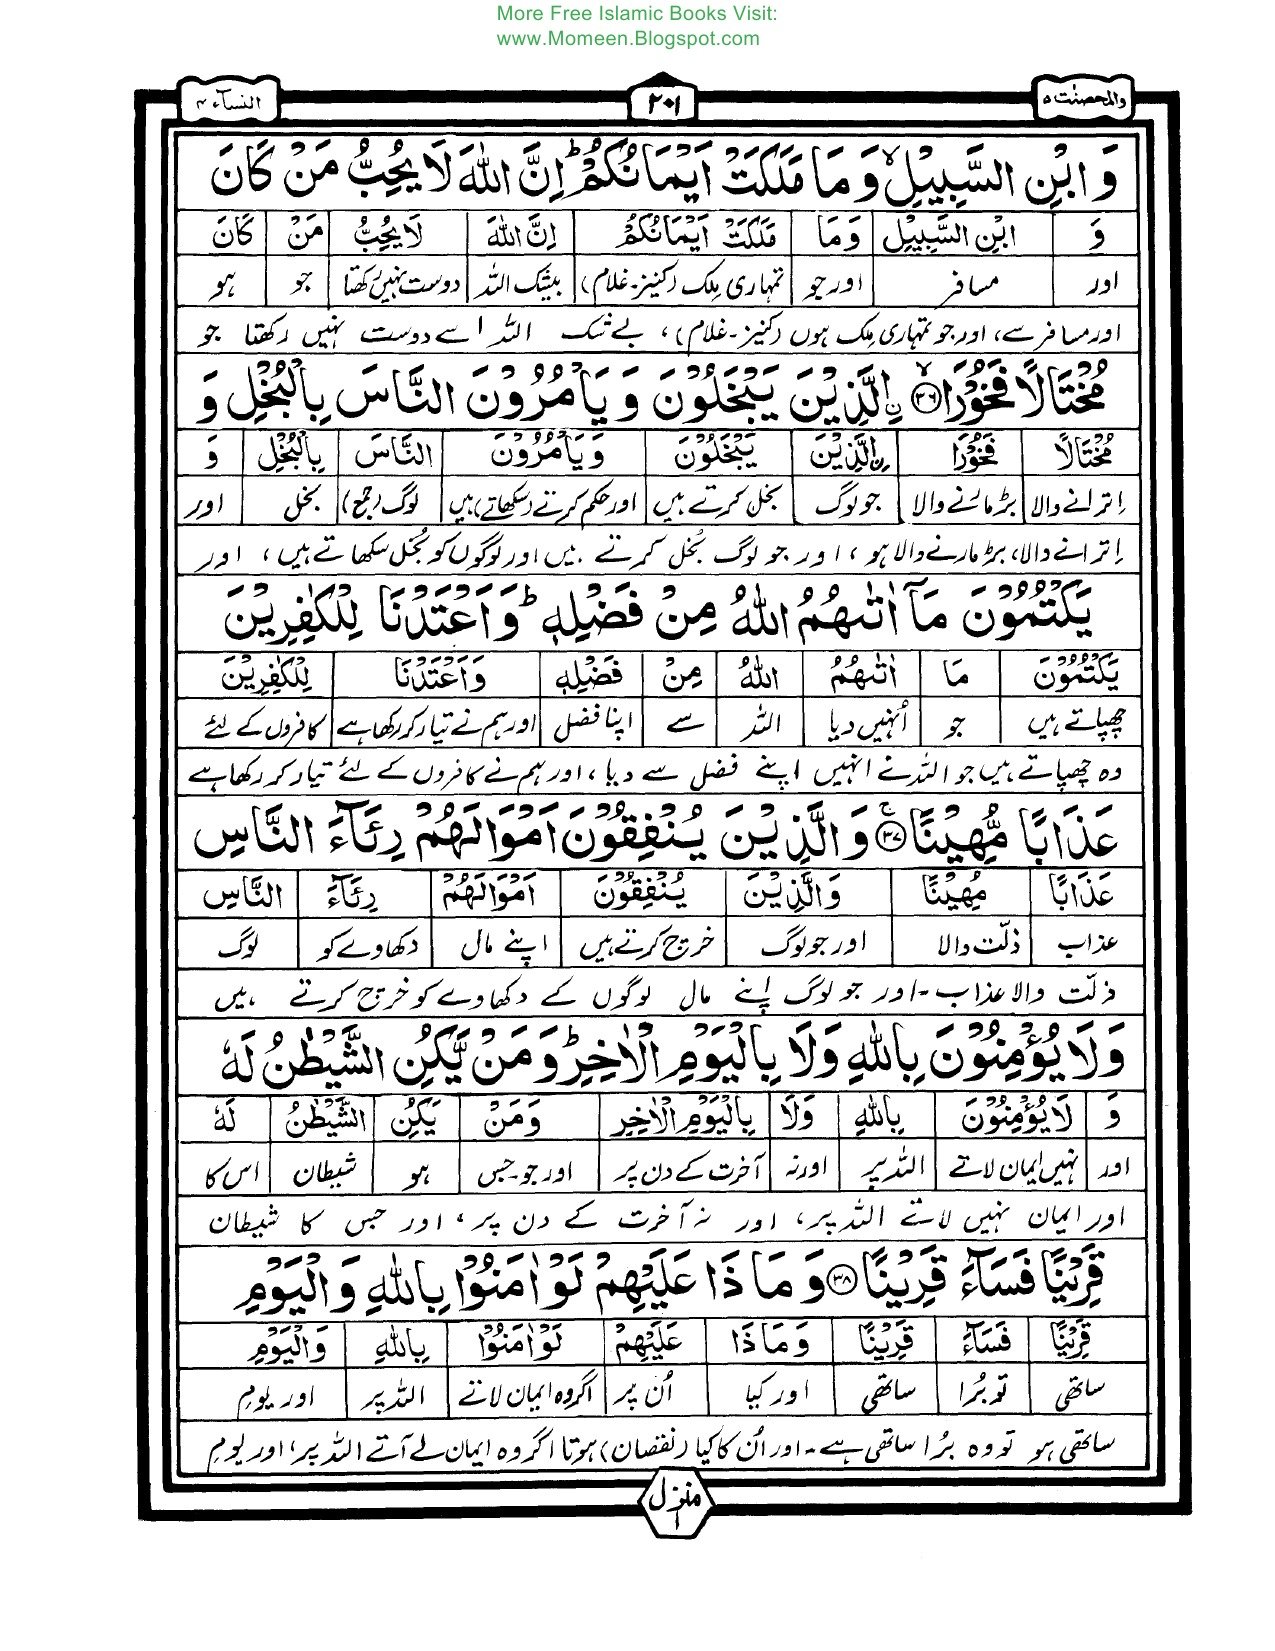 More Free Islamic Books Visit:
www.Momeen.Blogspot.com
والمحصنت ۵ ۲۰۱ النسآء ۴
وَ ابْنِ السَّبِیْلِ ۙ وَ مَا مَلَكَتْ اَیْمَانُكُمْ ؕ اِنَّ اللّٰهَ لَا یُحِبُّ مَنْ كَانَ
وَ ابْنِ السَّبِیْلِ وَمَا مَلَكَتْ اَیْمَانُكُمْ اِنَّ اللّٰهَ لَا یُحِبُّ مَنْ كَانَ
اور مسافر اور جو تمہاری مِلک (کنیز۔غلام) بیشک اللہ دوست نہیں رکھتا جو ہو
اور مسافر سے، اور جو تمہاری مِلک ہوں (کنیز۔غلام)، بے شک اللہ اسے دوست نہیں رکھتا جو
مُخْتَالًا فَخُوْرَا ۙ﴿۳۶﴾ ِ۟الَّذِیْنَ یَبْخَلُوْنَ وَ یَاْمُرُوْنَ النَّاسَ بِالْبُخْلِ وَ
مُخْتَالًا فَخُوْرَا ِ۟الَّذِیْنَ یَبْخَلُوْنَ وَ یَاْمُرُوْنَ النَّاسَ بِالْبُخْلِ وَ
اِترانے والا بڑ مارنے والا جو لوگ بخل کرتے ہیں اور حکم کرتے (سکھاتے) ہیں لوگ (جمع) بخل اور
اِترانے والا، بڑ مارنے والا ہو، اور جو لوگ بُخل کرتے ہیں اور لوگوں کو بُخل سکھاتے ہیں، اور
یَكْتُمُوْنَ مَاۤ اٰتٰىهُمُ اللّٰهُ مِنْ فَضْلِهٖ ؕ وَ اَعْتَدْنَا لِلْكٰفِرِیْنَ
یَكْتُمُوْنَ مَا اٰتٰىهُمُ اللّٰهُ مِنْ فَضْلِهٖ وَاَعْتَدْنَا لِلْكٰفِرِیْنَ
چھپاتے ہیں جو اُنہیں دیا اللہ سے اپنا فضل اور ہم نے تیار کر رکھا ہے کافروں کے لئے
وہ چھپاتے ہیں جو اللہ نے انہیں اپنے فضل سے دیا، اور ہم نے کافروں کے لئے تیار کر رکھا ہے
عَذَابًا مُّهِیْنًا ۚ﴿۳۷﴾ وَ الَّذِیْنَ یُنْفِقُوْنَ اَمْوَالَهُمْ رِئَآءَ النَّاسِ
عَذَابًا مُهِیْنًا وَالَّذِیْنَ یُنْفِقُوْنَ اَمْوَالَهُمْ رِئَآءَ النَّاسِ
عذاب ذلّت والا اور جو لوگ خرچ کرتے ہیں اپنے مال دکھاوے کو لوگ
ذلّت والا عذاب۔ اور جو لوگ اپنے مال لوگوں کے دکھاوے کو خرچ کرتے ہیں
وَلَا یُؤْمِنُوْنَ بِاللّٰهِ وَلَا بِالْیَوْمِ الْاٰخِرِ ؕ وَ مَنْ یَّكُنِ الشَّیْطٰنُ لَهٗ
وَ لَا یُؤْمِنُوْنَ بِاللّٰهِ وَلَا بِالْیَوْمِ الْاٰخِرِ وَمَنْ یَكُنِ الشَّیْطٰنُ لَهٗ
اور نہیں ایمان لاتے اللہ پر اور نہ آخرت کے دن پر اور جو۔جس ہو شیطان اس کا
اور ایمان نہیں لاتے اللہ پر، اور نہ آخرت کے دن پر، اور جس کا شیطان
قَرِیْنًا فَسَآءَ قَرِیْنًا ﴿۳۸﴾ وَ مَا ذَا عَلَیْهِمْ لَوْ اٰمَنُوْا بِاللّٰهِ وَ الْیَوْمِ
قَرِیْنًا فَسَآءَ قَرِیْنًا وَ مَا ذَا عَلَیْهِمْ لَوْ اٰمَنُوْا بِاللّٰهِ وَالْیَوْمِ
ساتھی تو بُرا ساتھی اور کیا اُن پر اگر وہ ایمان لاتے اللہ پر اور یومِ
ساتھی ہو تو وہ بُرا ساتھی ہے۔ اور اُن کا کیا (نقصان) ہوتا اگر وہ ایمان لے آتے اللہ پر، اور یومِ
منزل ۱